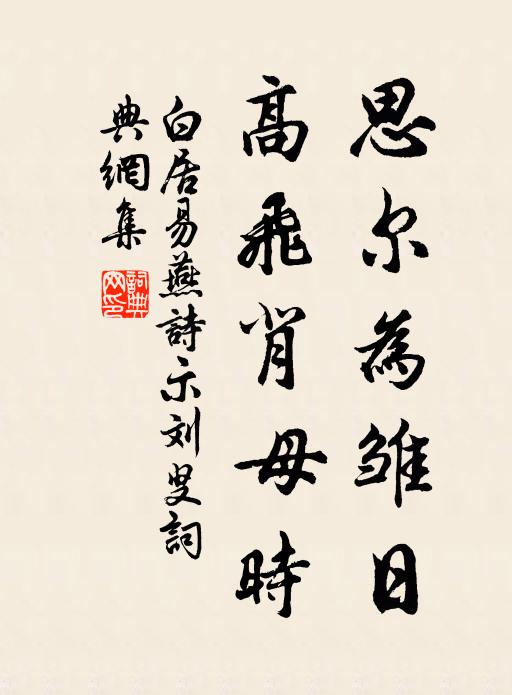 思尔為雏日
高飛背母時
白居易燕詩示刘叟詞
典網集
詞典
网印